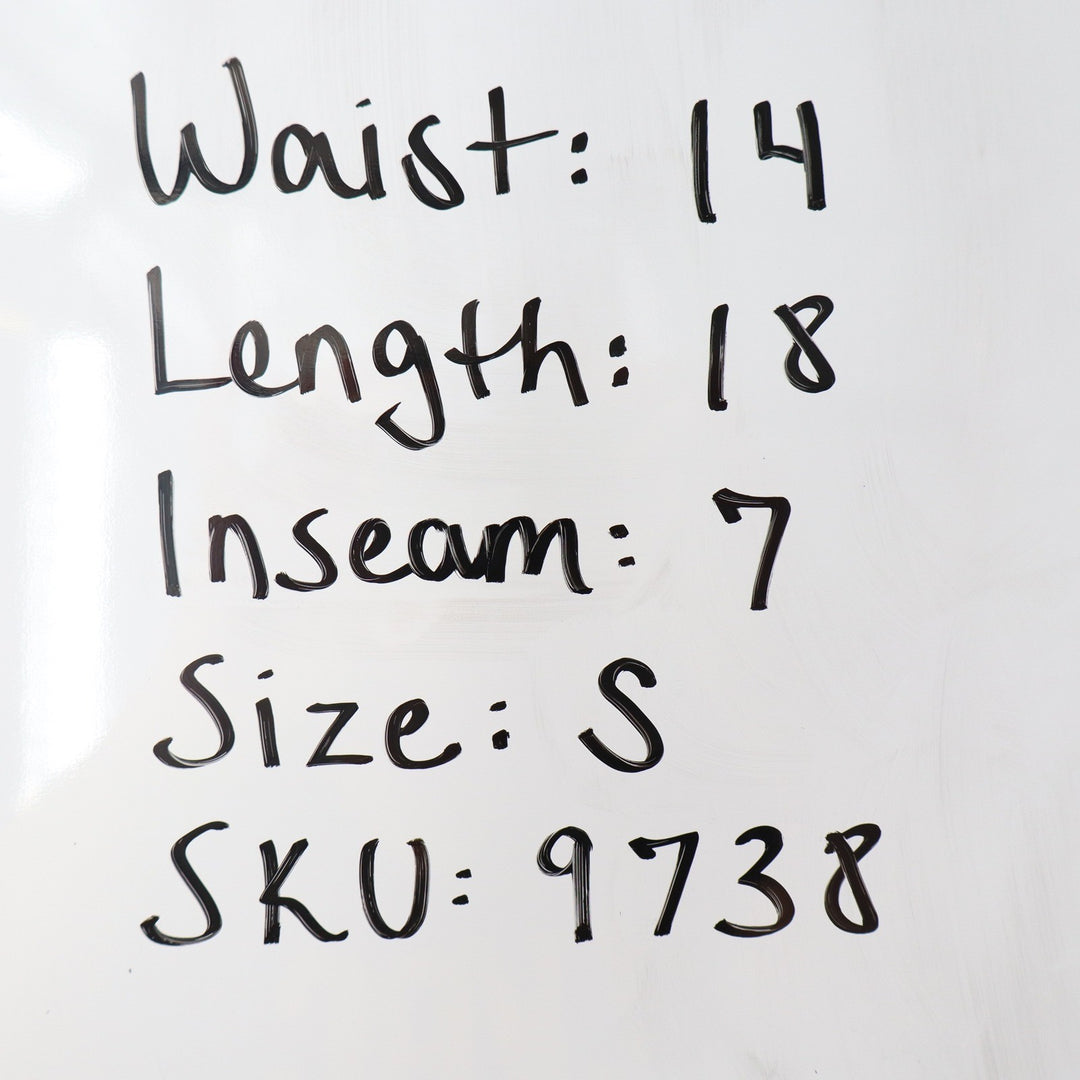 Waist: 14
Length: 18
Inseam: 7
Size: S
SKU: 9738